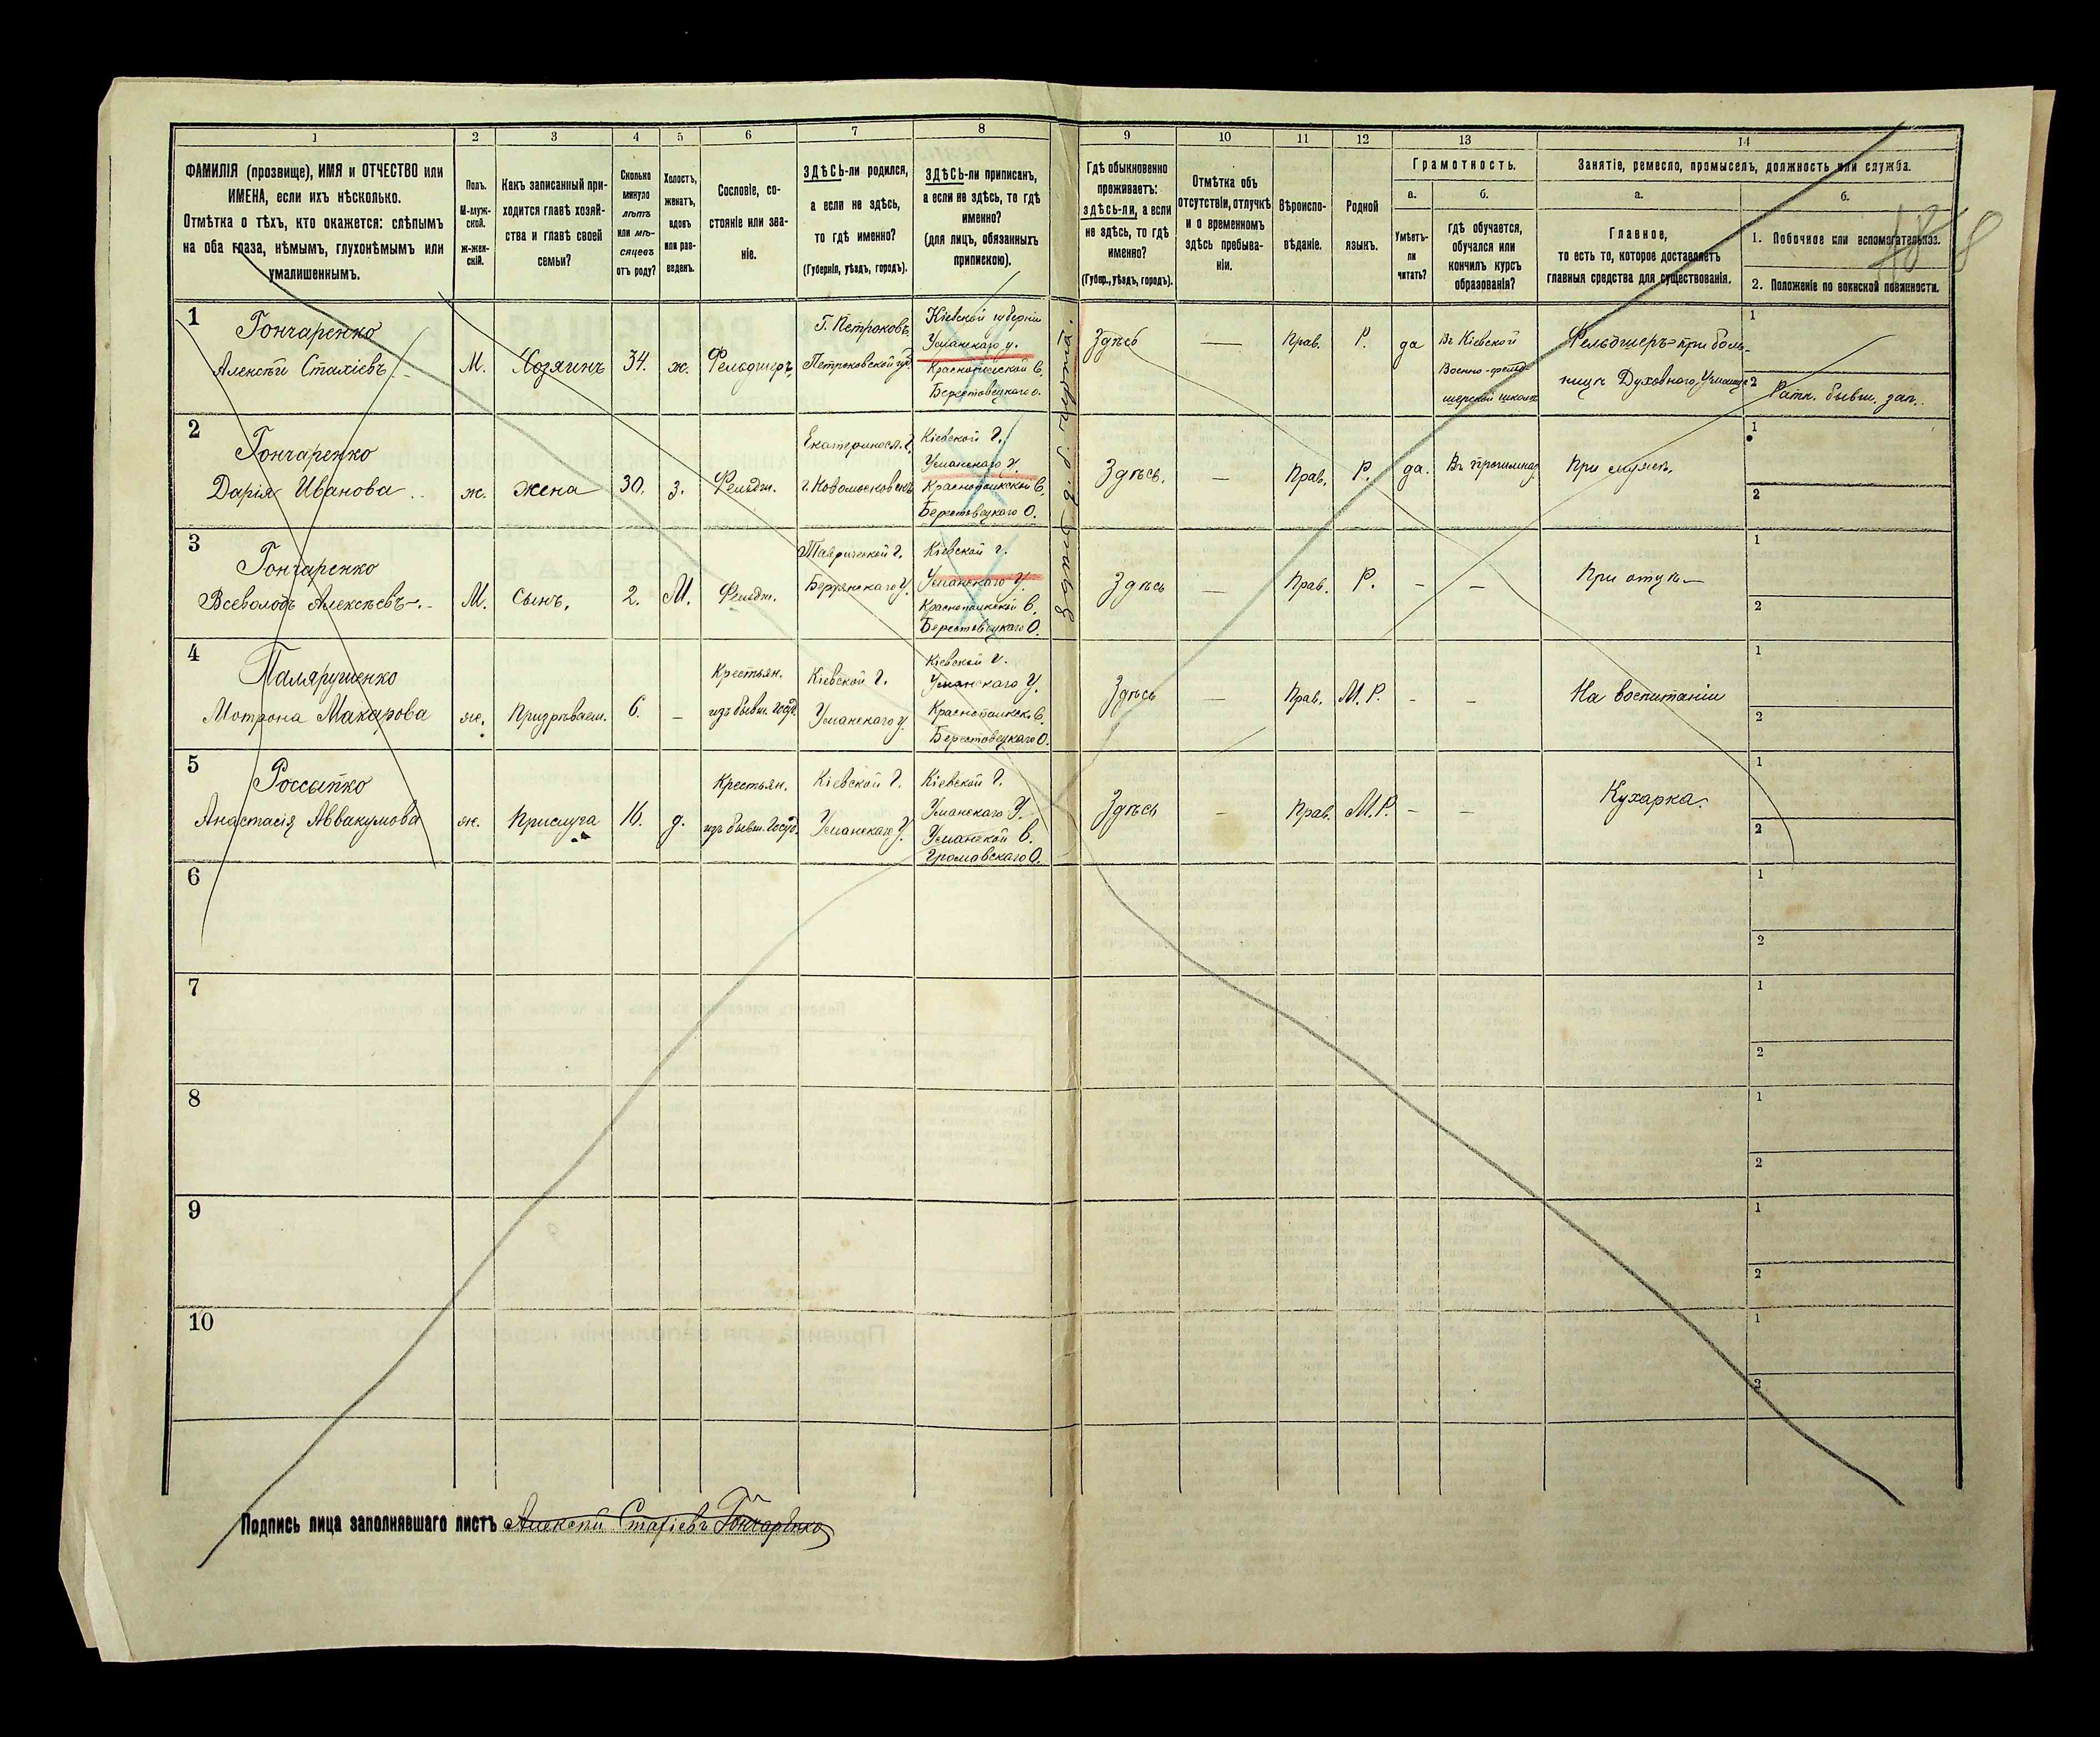 1 2 3 4 5 6 7 8 9 10 11 12 13 14
ФАМИЛІЯ (прозвище), ИМЯ и ОТЧЕСТВО или
ИМЕНА, если ихъ нѣсколько.
Отмѣтка о тѣхъ, кто окажется: слѣпымъ
на оба глаза, нѣмымъ, глухонѣмымъ или
умалишеннымъ.
Полъ.
М-муж-
ской.
ж-жен-
скій.
Какъ записанный при-
ходится главѣ хозяй-
ства и главѣ своей
семьи?
Сколько
минуло
лѣтъ
или мѣ-
сяцевъ
отъ роду?
Холостъ,
женатъ,
вдовъ
или раз-
веденъ.
Сословіе, со-
стояніе или зва-
ніе.
ЗДѢСЬ-ли родился,
а если не здѣсь,
то гдѣ именно?
(Губернія, уѣздъ, городъ).
ЗДѢСЬ-ли приписанъ,
а если не здѣсь, то гдѣ
именно?
(для лицъ, обязанныхъ
припискою).
Гдѣ обыкновенно
проживаетъ:
здѣсь-ли, а если
не здѣсь, то гдѣ
именно?
(Губер., уѣздъ, городъ).
Отмѣтка объ
отсутствіи, отлучкѣ
и о временномъ
здѣсь пребыва-
ніи.
Вѣроиспо-
вѣданіе.
Родной
языкъ.
Грамотность.
а.
Умѣетъ-
ли
читать?
б.
гдѣ обучается,
обучался или
кончилъ курсъ
образованія?
Занятіе, ремесло, промыселъ, должность или служба.
а.
Главное,
то есть то, которое доставляетъ
главныя средства для существованія.
б.
1. Побочное или вспомогательное.
2. Положеніе по воинской повинности.
1
Гончаренко
Алексѣй Стахіевъ
М.
Хозяинъ
34.
ж.
Фельдшеръ
Г. Петроковъ
Петроковской губ.
Кіевской губерніи
Уманскаго у.
В.
Берестовецкаго о.
Здѣсь
—
Прав.
Р.
да
Въ Кіевской
Военно-фельд-
шерской школѣ
Фельдшеръ при боль-
ницѣ Духовнаго Училища
1
2
Ратн. бывш. зап.
2
Гончаренко
Дарія Иванова
ж.
жена
30.
з.
Фельдш.
Екатериносл. г.
г. Новомосковскъ
Кіевской г.
Уманскаго у.
В.
Берестовецкаго О.
Здѣсь.
—
Прав.
Р.
да.
При мужѣ.
1
2
3
Гончаренко
Всеволодъ Алексѣевъ
М.
Сынъ.
2.
М.
Фельдш.
Таврической г.
Бердянскаго у.
Кіевской г.
Уманскаго у.
В.
Берестовецкаго О.
Здѣсь
—
Прав.
Р.
—
—
При отцѣ
1
2
4
Мотрона Макарова
ж.
Призрѣваем.
6.
—
Крестьян.
изъ бывш. госуд.
Кіевской г.
Уманскаго у.
Кіевской г.
Уманскаго у.
В.
Берестовецкаго О.
Здѣсь
—
Прав.
М. Р.
—
—
На воспитаніи
1
2
5
Россыпко
Анастасія Аввакумова
ж.
Прислуга
16.
д.
Крестьян.
изъ бывш. госуд.
Кіевской г.
Уманскаго у.
Кіевской г.
Уманскаго у.
Уманской В.
Громовскаго О.
Здѣсь
—
Прав.
М. Р.
—
—
Кухарка.
1
2
6
1
2
7
1
2
8
1
2
9
1
2
10
1
2
Подпись лица заполнявшаго листъ Алексѣй Стахіевъ Гончаренко